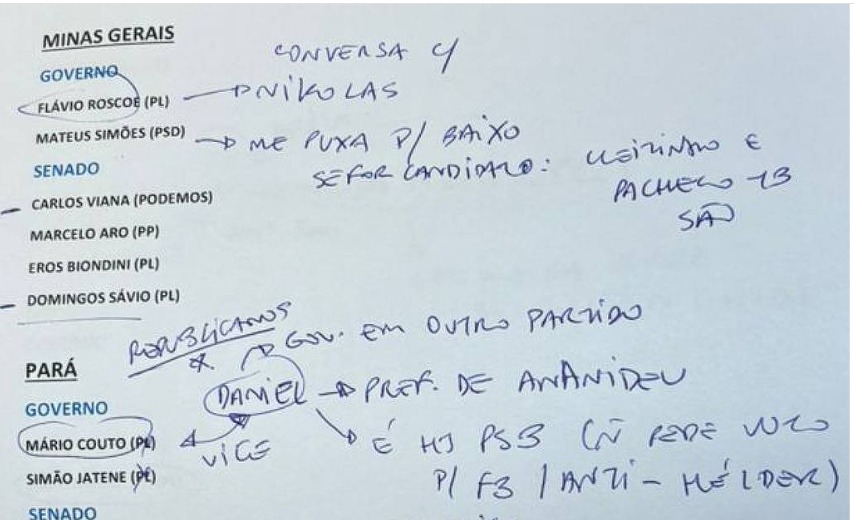 MINAS GERAIS
CONVERSA C/
GOVERNO
FLÁVIO ROSCOE (PL) → NIKOLAS
MATEUS SIMÕES (PSD) → ME PUXA P/ BAIXO
SE FOR CANDIDATO: CLEITINHO E
PACHECO 13
SÃO
SENADO
CARLOS VIANA (PODEMOS)
MARCELO ARO (PP)
EROS BIONDINI (PL)
DOMINGOS SÁVIO (PL)
REPUBLICANOS
* → GOV. EM OUTRO PARTIDO
PARÁ
DANIEL → PREF. DE ANANIDEU
GOVERNO
MÁRIO COUTO (PL)
VICE
→ É HJ PSB (Ñ PEDE VOTO
P/ FB / ANTI-HÉLDER)
SIMÃO JATENE (PL)
SENADO